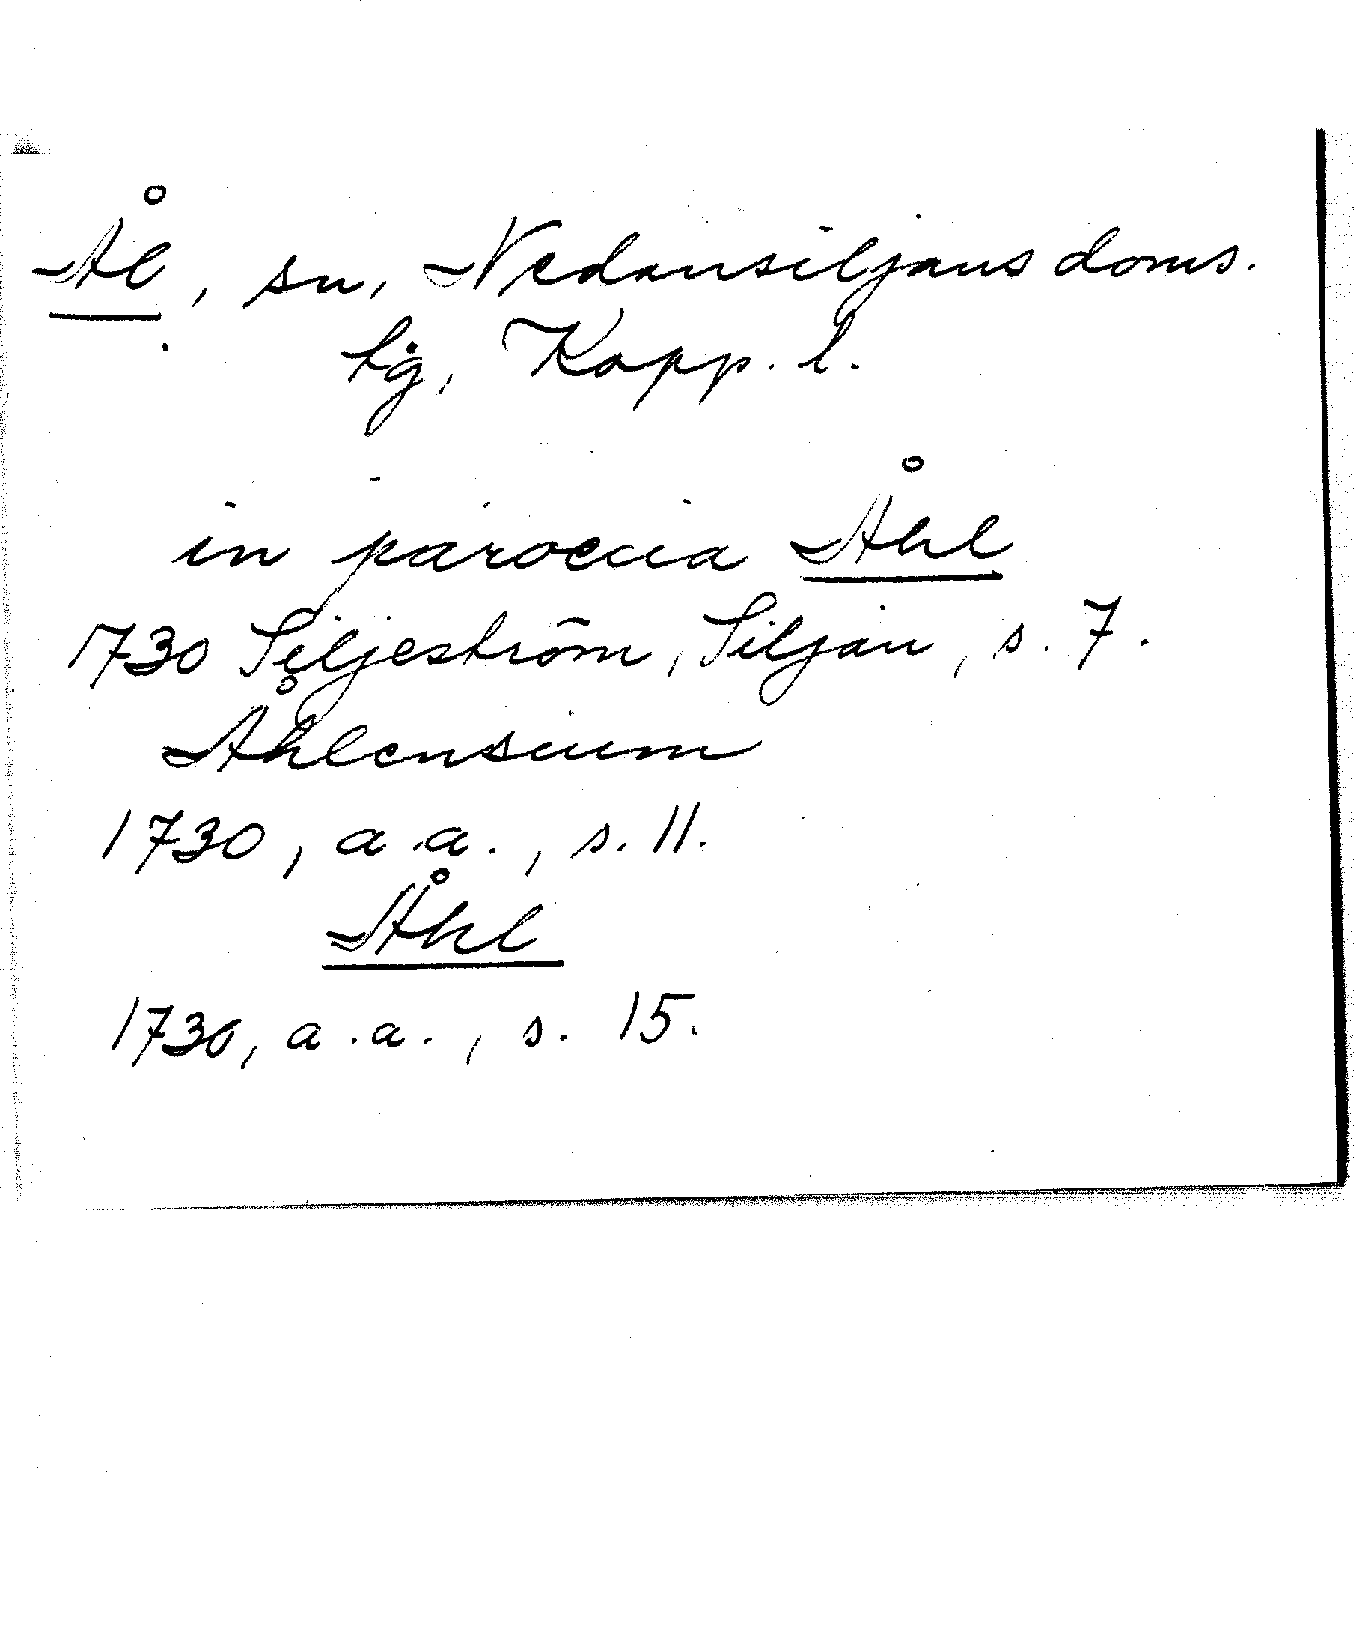 Ål, sn, Nedansiljans doms.
tg, Kopp. l.
in paroecia Åhl
1730 Siljeström, Siljan, s. 7.
Åhlensium
1730, a.a., s. 11.
Åhl
1730, a.a., s. 15.